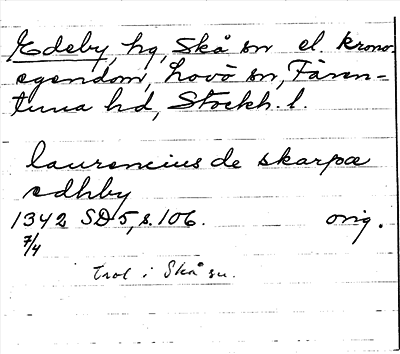 Edeby, hg, Skå sn el. krono-
egendom, Lovö sn, Fären-
tuna hd, Stockh. l.
laurencius de skarpæ
edhby
1342 SD 5, s. 106. orig.
7/4
Trol i Skå sn.